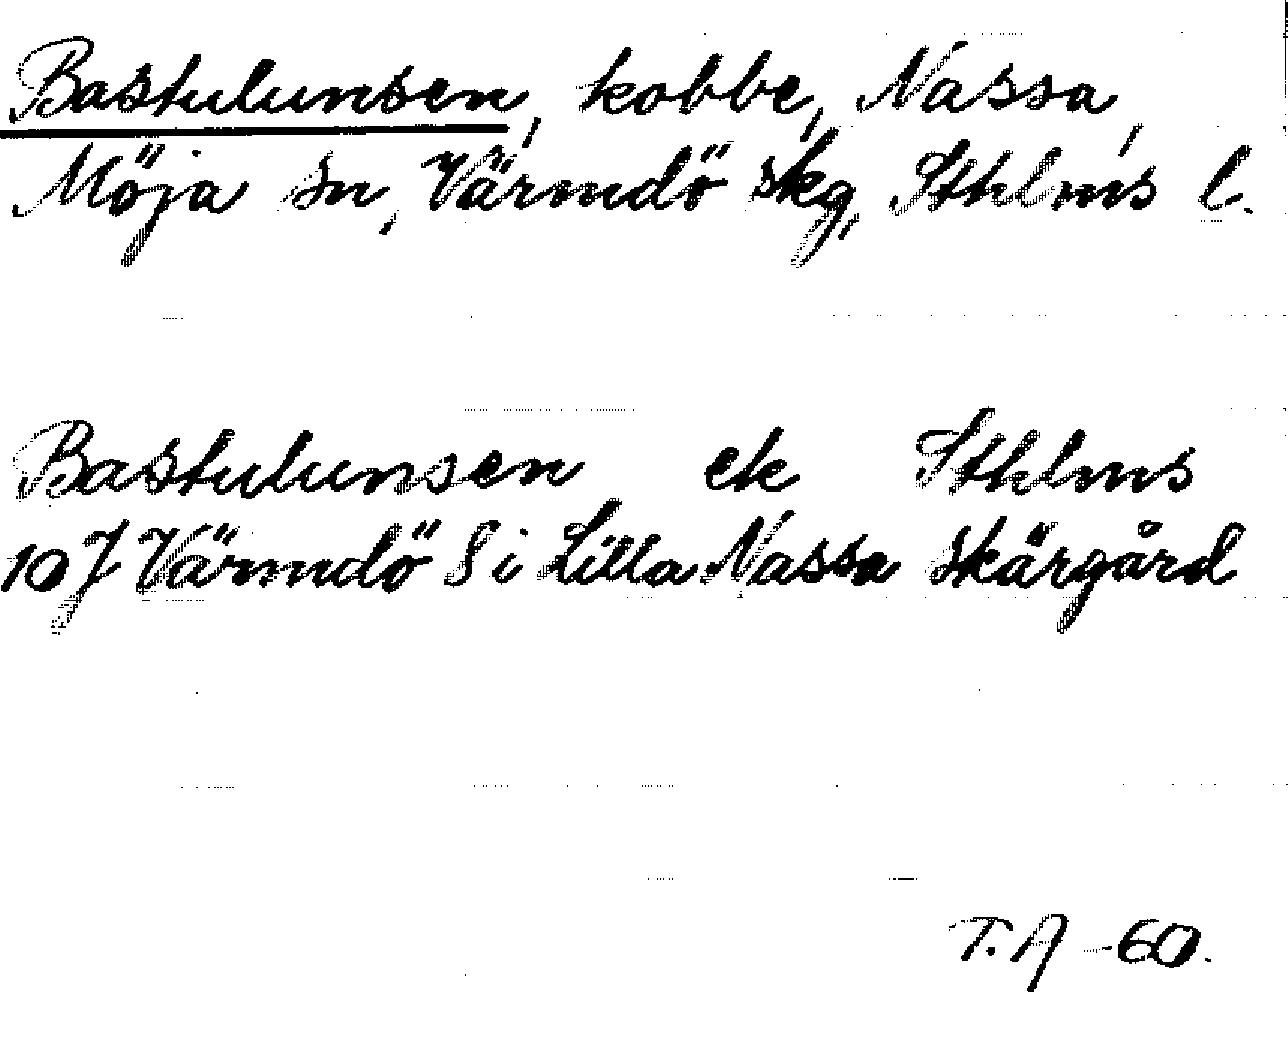 Bastulunsen, kobbe, Nassa,
Möja sn, Värmdö skg, Sthlms l.
Bastulunsen ek Sthlms
10 J Värmdö 8 i Lilla Nassa skärgård
T. A -60.